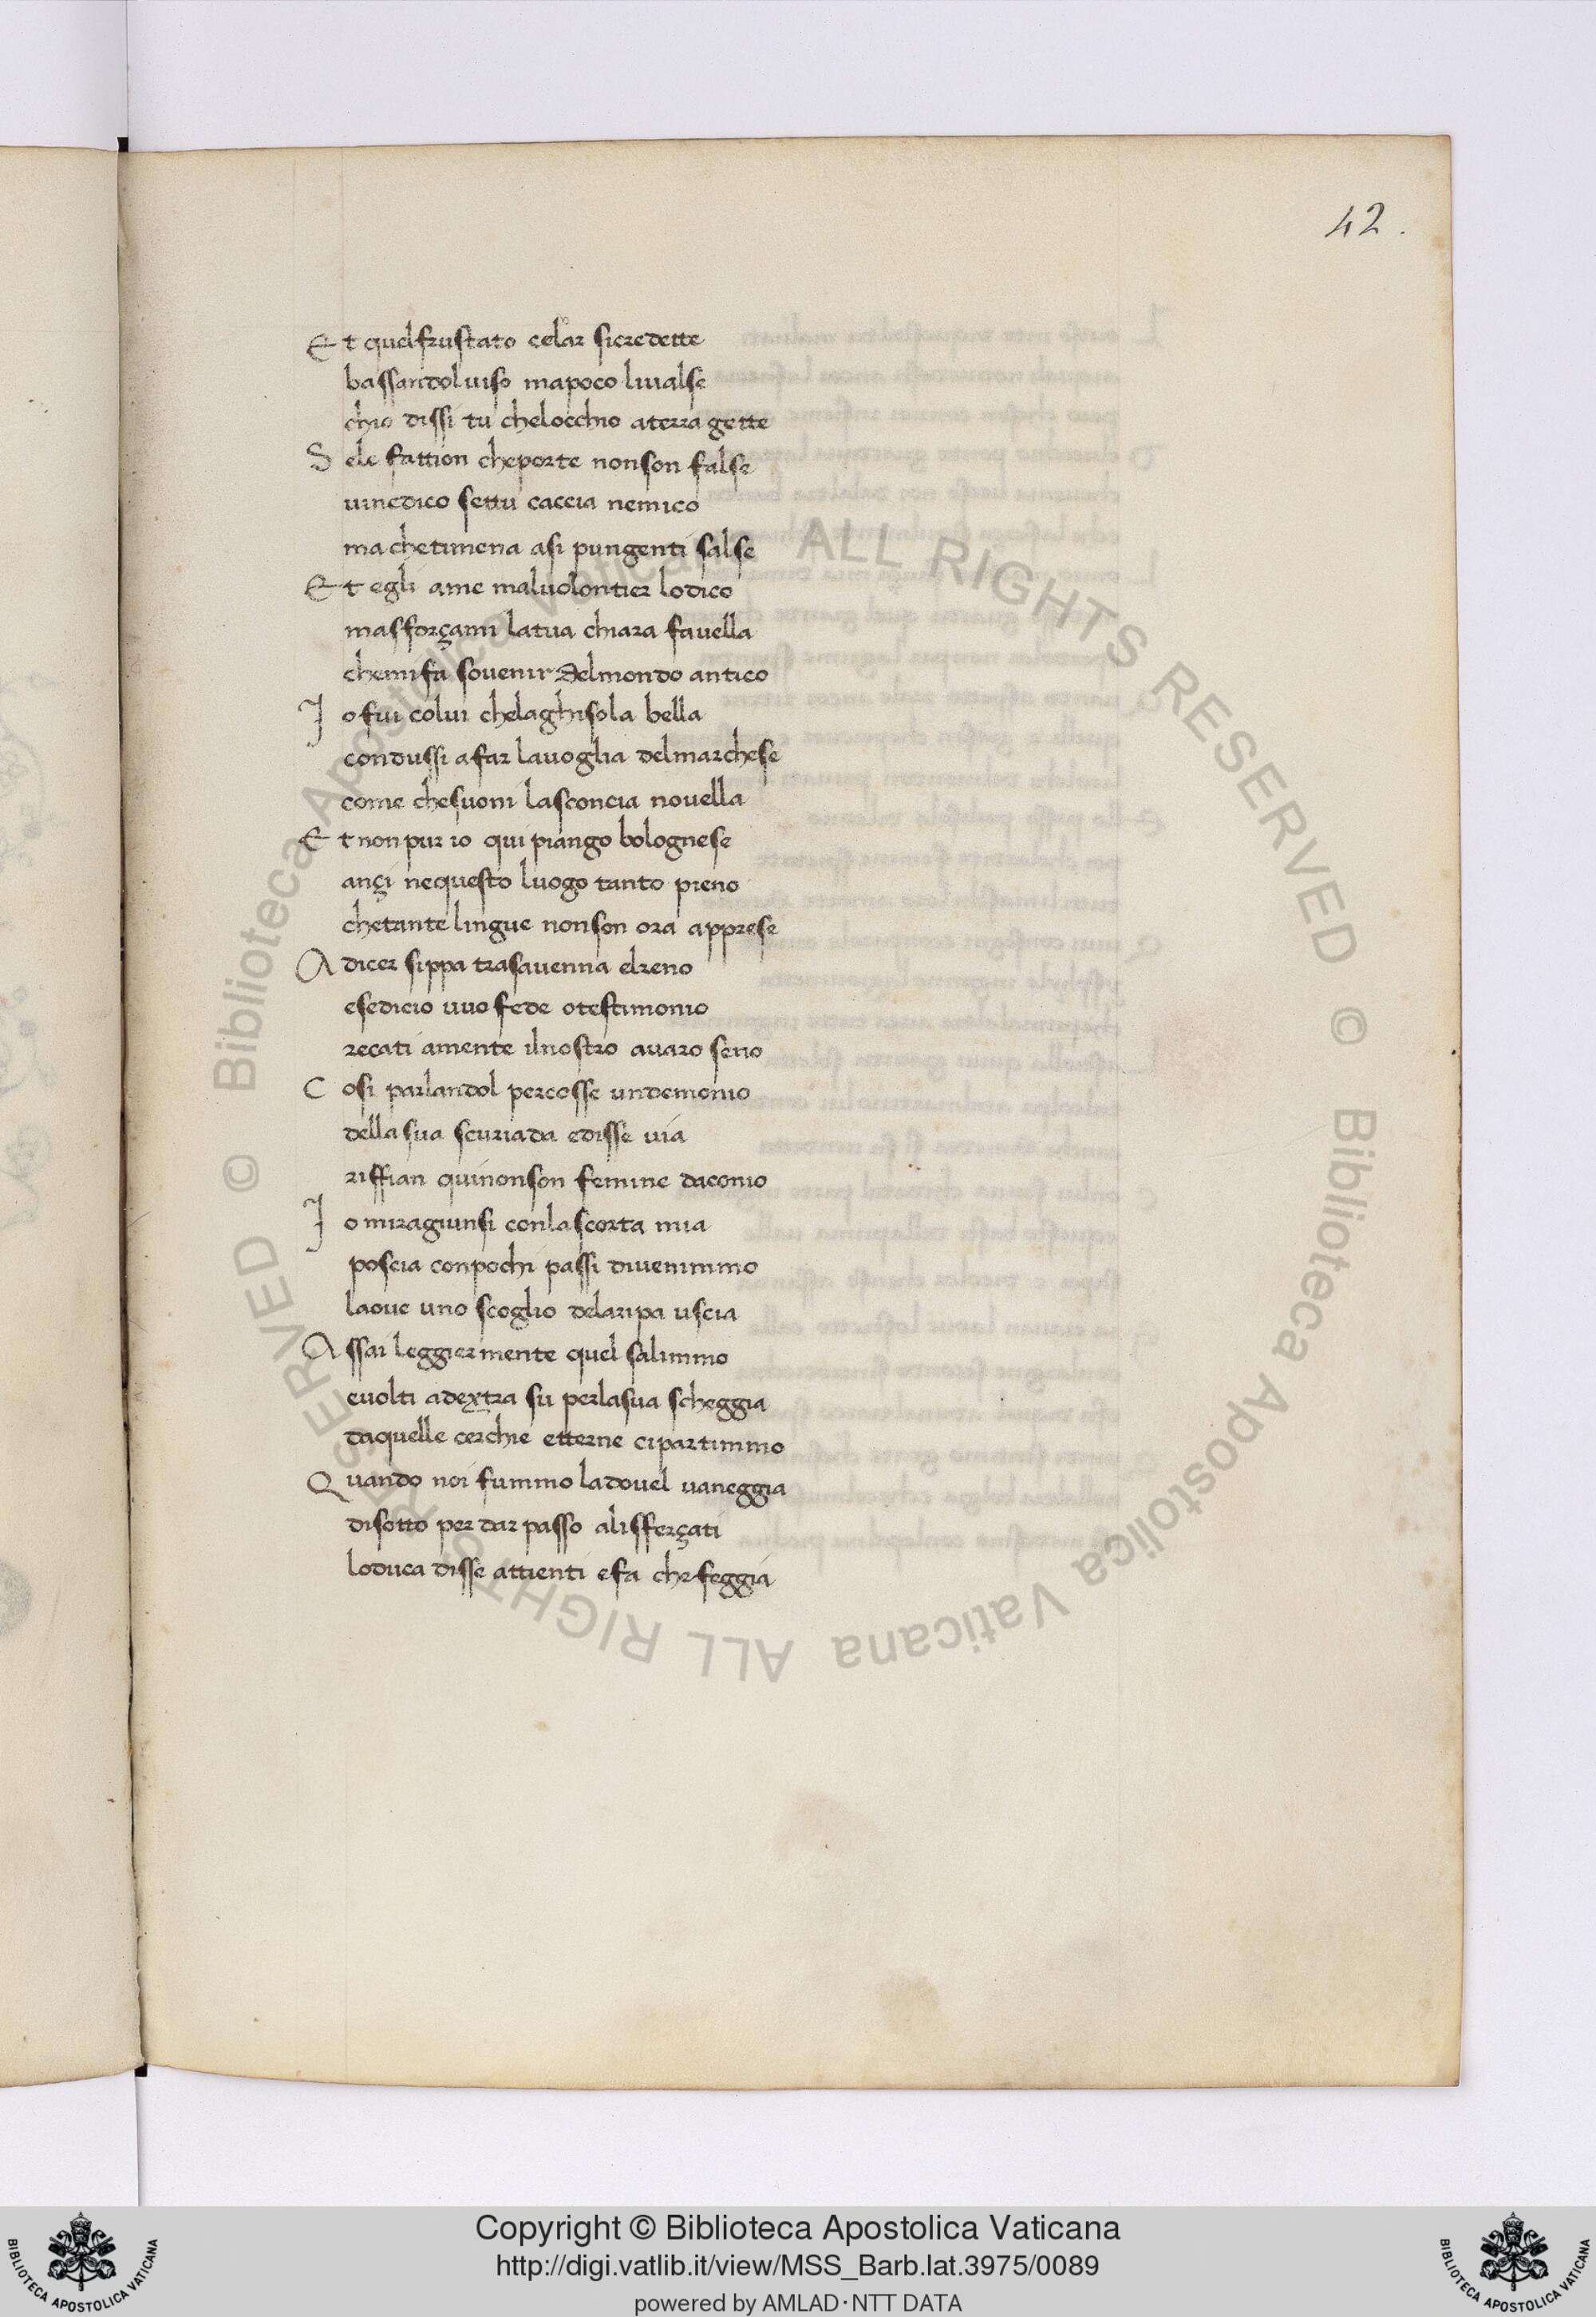 42.
Et quelfrustato celar sicredette
bassandol uiso mapoco liualse
chio dissi tu chelocchio aterra gette
Sele fattion cheporte nonson false
uinedico settu caccia nemico
ma chetimena asi pungenti salse
Et egli ame maluolontier lodico
masforçami latua chiara fauella
chemifa souenir delmondo antico
Io fui colui chelaghisola bella
condussi afar lauoglia delmarchese
come chesuoni lasconcia nouella
Et nonpur io qui piango bolognese
ançi nequesto luogo tanto pieno
chetante lingue nonson ora apprese
A dicer sippa trasauenna elreno
esedicio uuo fede otestimonio
recati amente ilnostro auaro seno
Cosi parlandol percosse undemonio
della sua scuriada edisse uia
riffian quinonson femine daconio
Io miragiunsi conlascorta mia
poscia conpochi passi diuenimmo
laoue uno scoglio delaripa uscia
Assai leggiermente quel salimmo
euolti adextra su perlasua scheggia
daquelle cerchie etterne cipartimmo
Quando noi fummo ladouel uaneggia
disotto per dar passo alisferçati
loduca disse attienti efa chefeggia
ALL RIGHTS RESERVED © Biblioteca Apostolica Vaticana ALL RIGHTS RESERVED © Biblioteca Apostolica Vaticana
Copyright © Biblioteca Apostolica Vaticana
http://digi.vatlib.it/view/MSS_Barb.lat.3975/0089
powered by AMLAD·NTT DATA
BIBLIOTECA APOSTOLICA VATICANA
BIBLIOTECA APOSTOLICA VATICANA